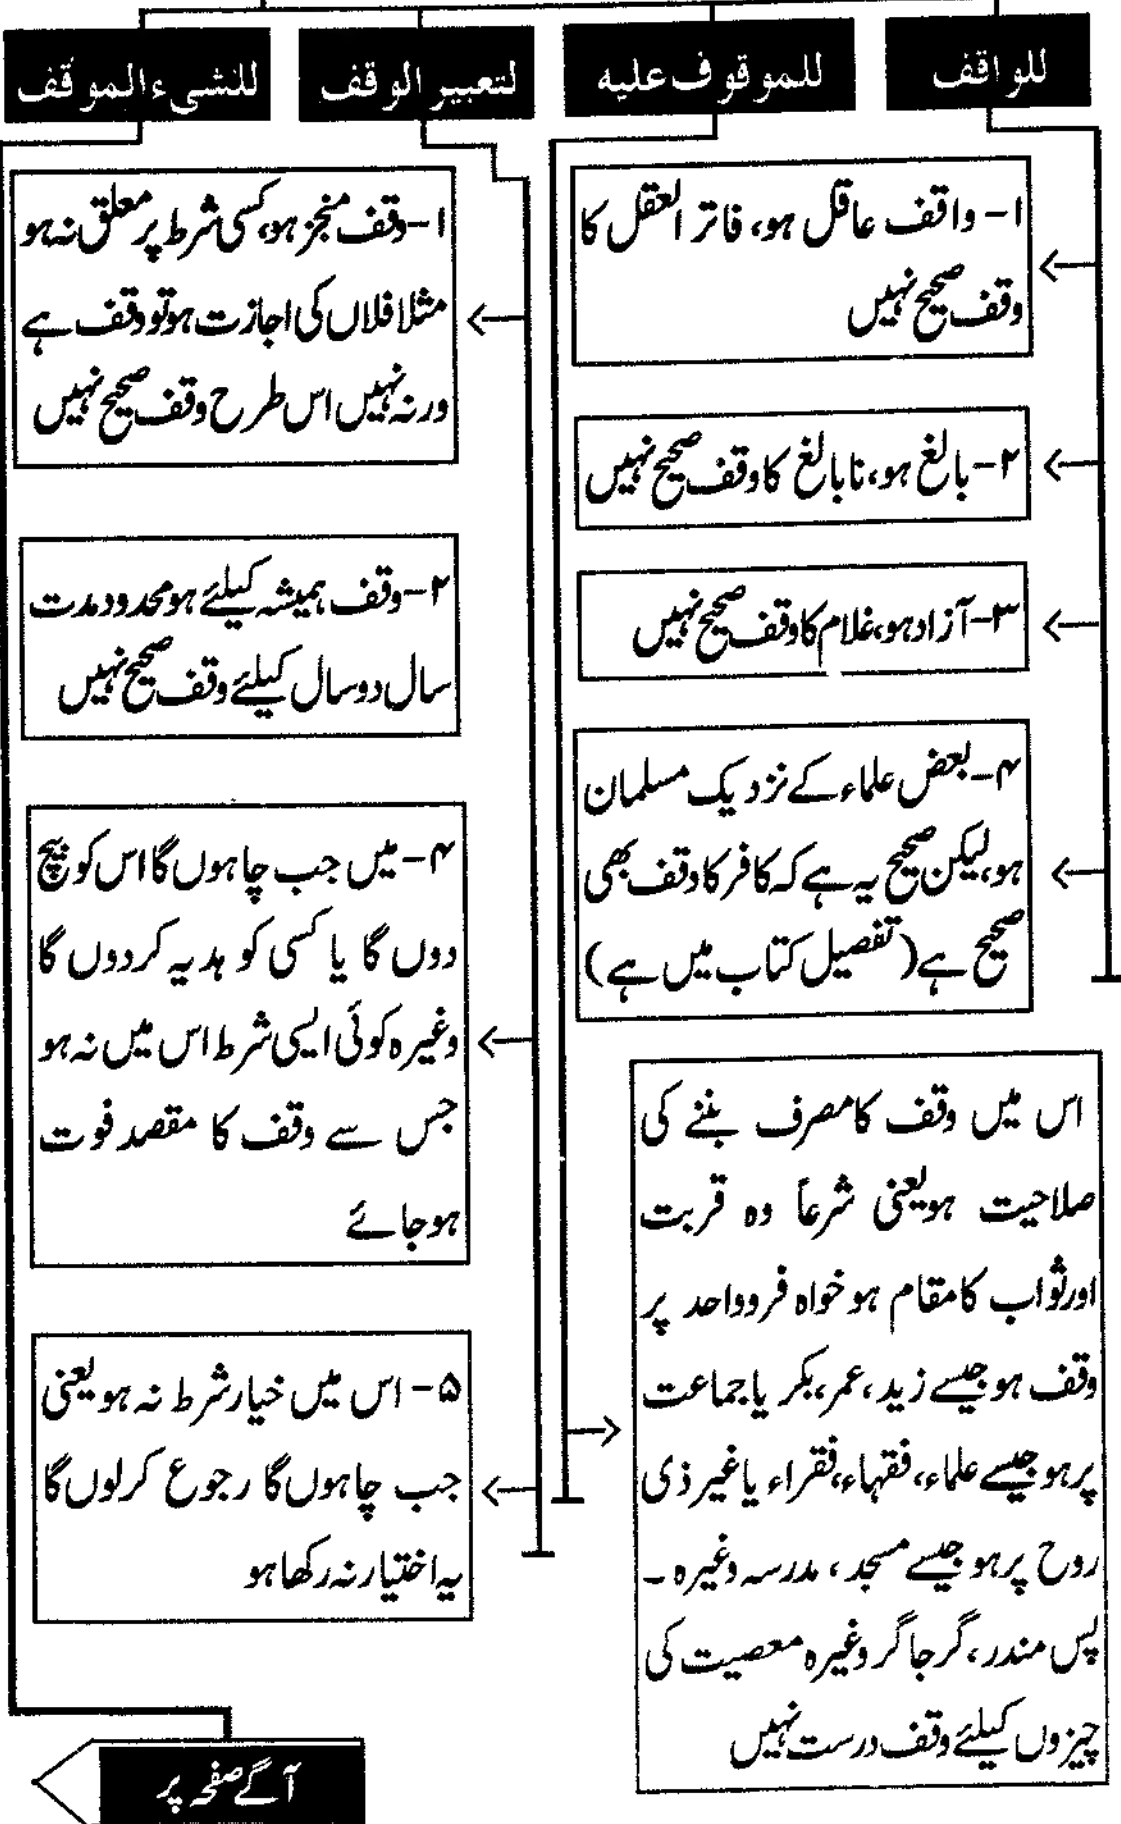 للواقف
للموقوف علیه
لتعبیر الوقف
للشیء الموقف
۱- واقف عاقل ہو، فاتر العقل کا
وقف صحیح نہیں
۲- بالغ ہو، نابالغ کا وقف صحیح نہیں
۳- آزاد ہو، غلام کا وقف صحیح نہیں
۴- بعض علماء کے نزدیک مسلمان
ہو، لیکن صحیح یہ ہے کہ کافر کا وقف بھی
صحیح ہے (تفصیل کتاب میں ہے)
اس میں وقف کا مصرف بننے کی
صلاحیت ہو یعنی شرعاً وہ قربت
اور ثواب کا مقام ہو خواہ فرو واحد پر
وقف ہو جیسے زید، عمر، بکر یا جماعت
پر ہو جیسے علماء، فقہاء، فقراء یا غیر ذی
روح پر ہو جیسے مسجد، مدرسہ وغیرہ ۔
پس مندر، گرجا گر وغیرہ معصیت کی
چیزوں کیلئے وقف درست نہیں
۱- وقف منجز ہو، کسی شرط پر معلق نہ ہو
مثلا فلاں کی اجازت ہو تو وقف ہے
ورنہ نہیں اس طرح وقف صحیح نہیں
۲- وقف ہمیشہ کیلئے ہو محدود مدت
سال دو سال کیلئے وقف صحیح نہیں
۴- میں جب چاہوں گا اس کو بیچ
دوں گا یا کسی کو ہدیہ کر دوں گا
وغیرہ کوئی ایسی شرط اس میں نہ ہو
جس سے وقف کا مقصد فوت
ہو جائے
۵- اس میں خیار شرط نہ ہو یعنی
جب چاہوں گا رجوع کر لوں گا
یہ اختیار نہ رکھا ہو
آگے صفحہ پر